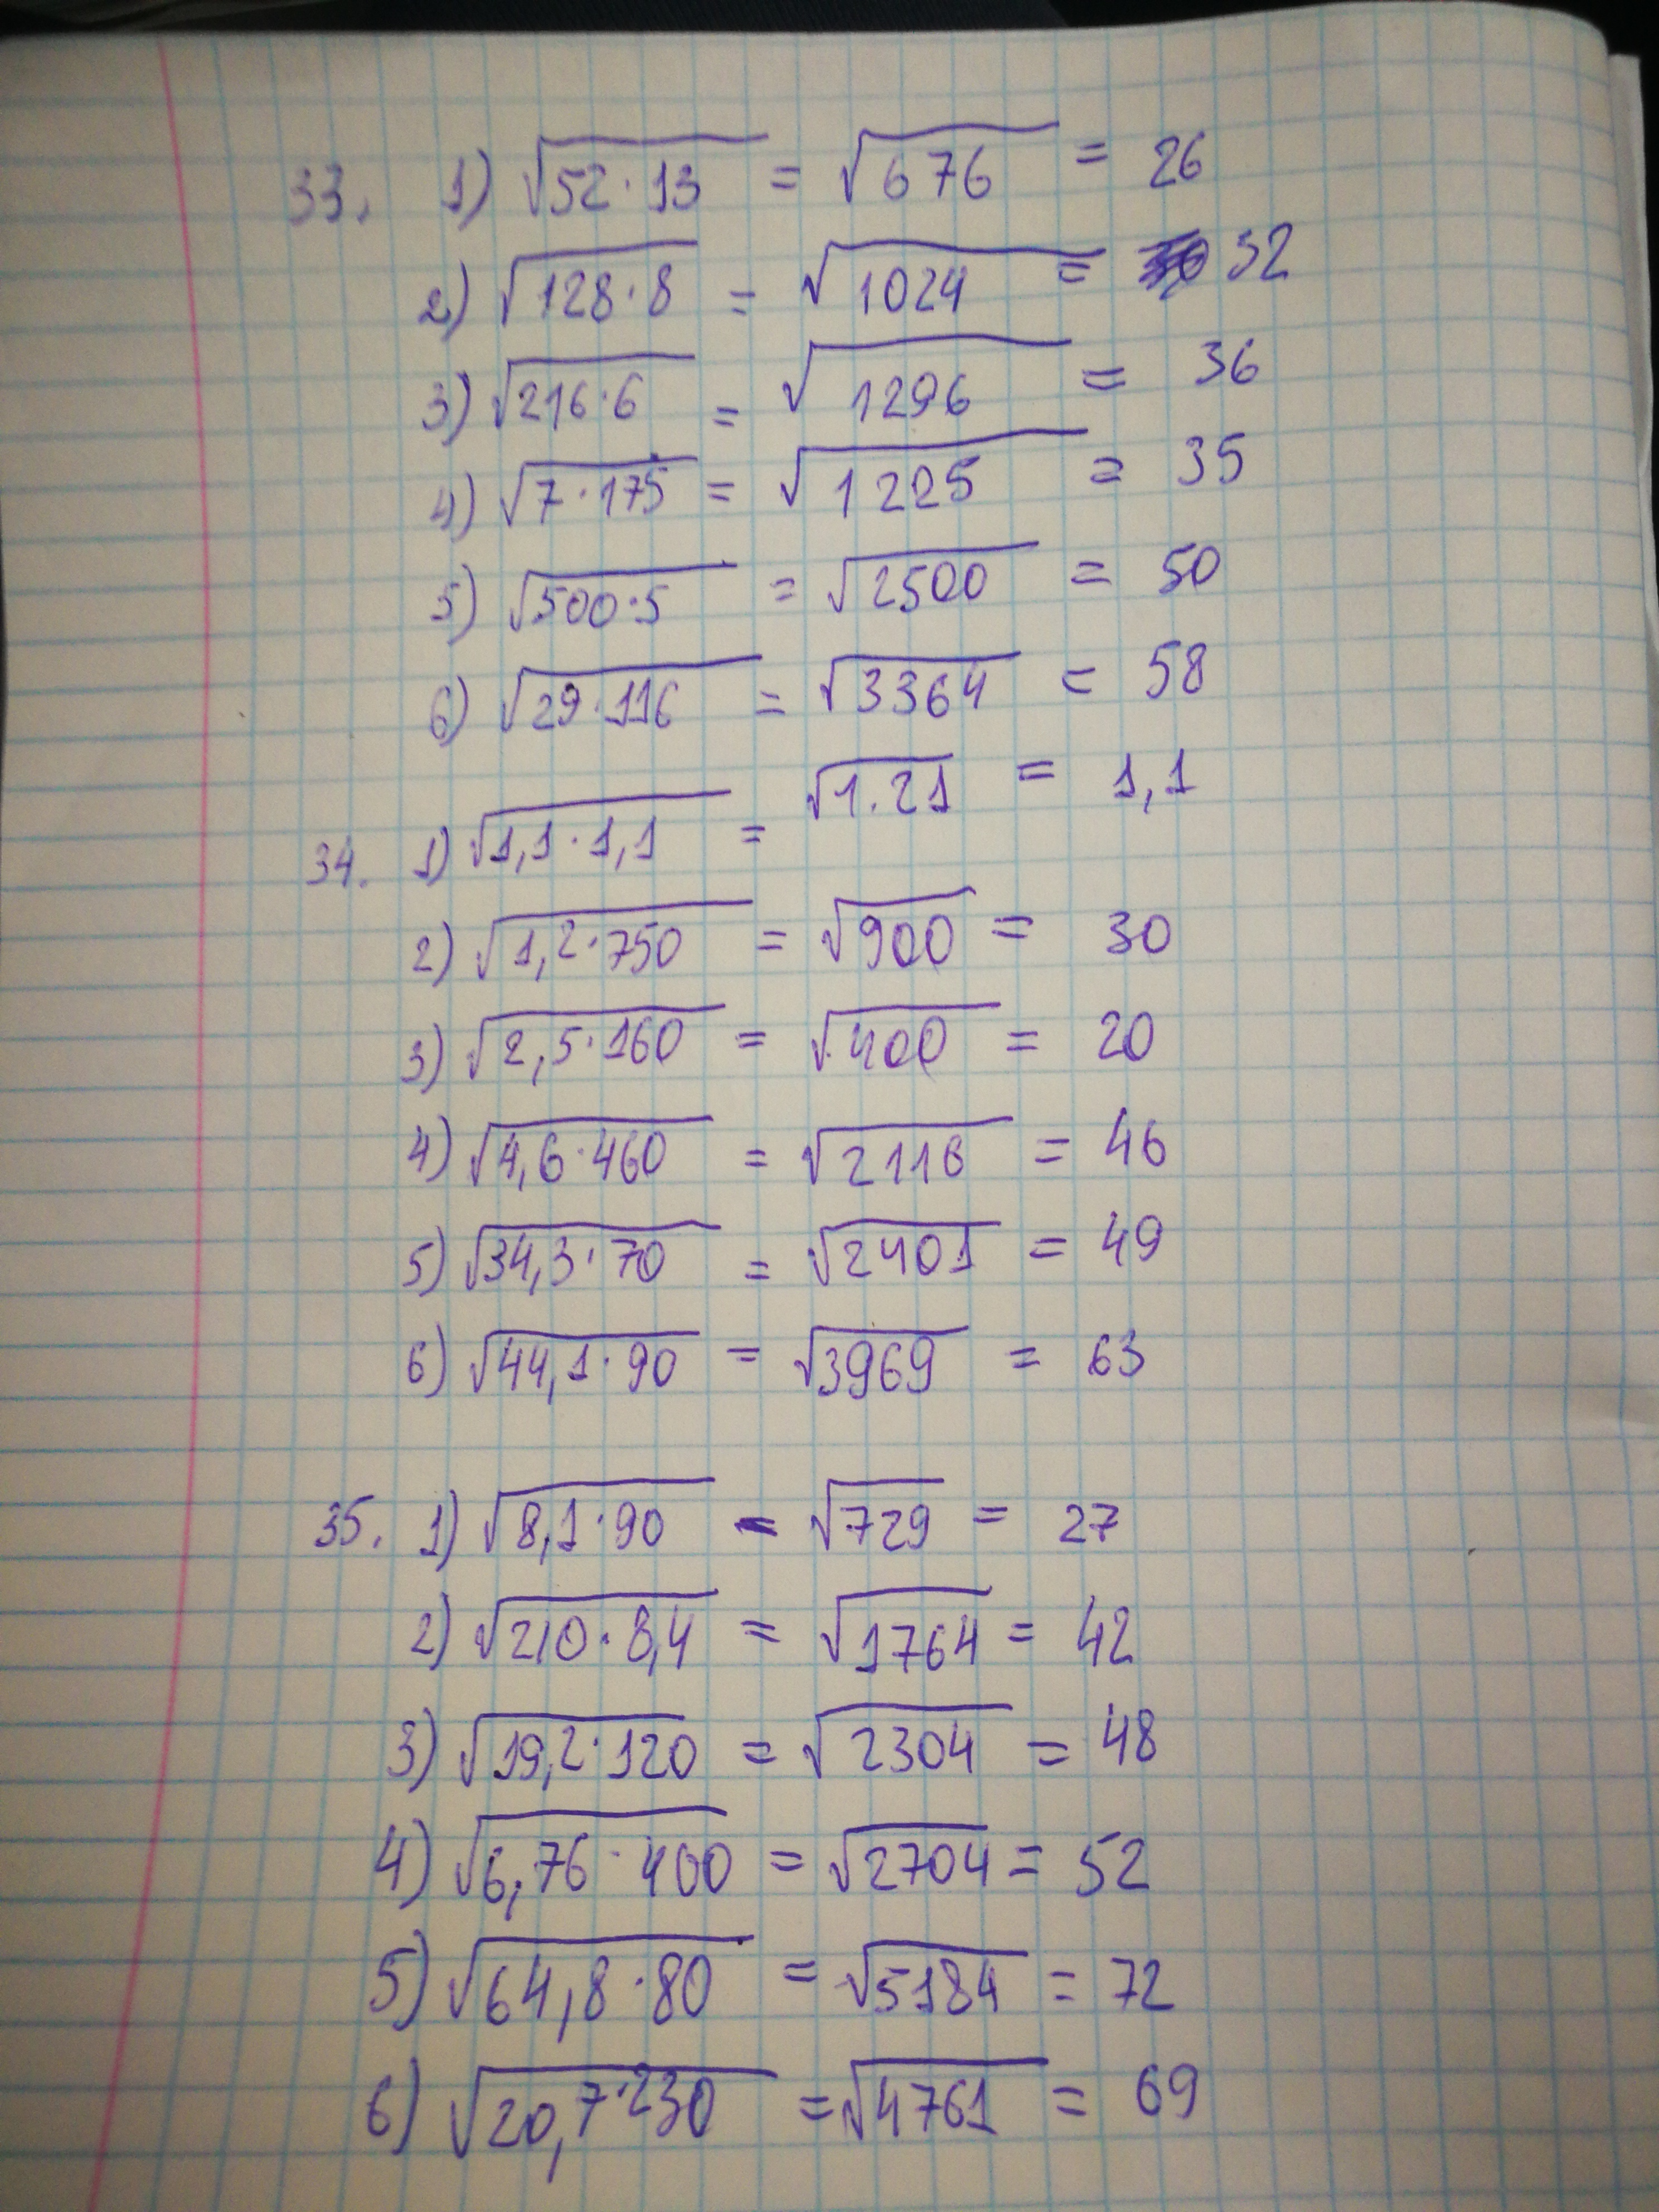 33. 1) √52·13 = √676 = 26
2) √128·8 = √1024 = 32
3) √216·6 = √1296 = 36
4) √7·175 = √1225 = 35
5) √500·5 = √2500 = 50
6) √29·116 = √3364 = 58
34. 1) √1,1·1,1 = √1.21 = 1,1
2) √1,2·750 = √900 = 30
3) √2,5·160 = √400 = 20
4) √4,6·460 = √2116 = 46
5) √34,3·70 = √2401 = 49
6) √44,1·90 = √3969 = 63
35. 1) √8,1·90 = √729 = 27
2) √210·8,4 = √1764 = 42
3) √19,2·120 = √2304 = 48
4) √6,76·400 = √2704 = 52
5) √64,8·80 = √5184 = 72
6) √20,7·230 = √4761 = 69